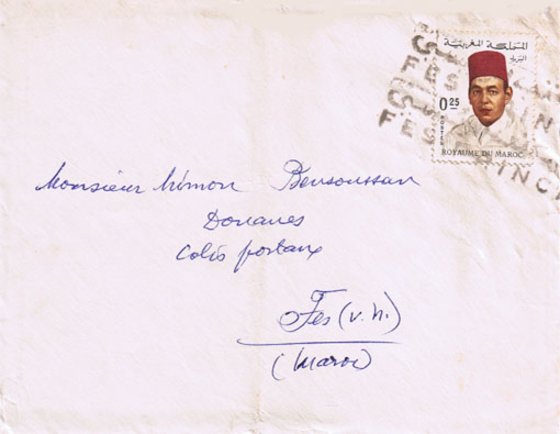 المملكة المغربية
البريد
0.25
POSTES
ROYAUME DU MAROC
Monsieur Mimon Bensoussan
Douanes
Colis postaux
Fes (v.n.)
(Maroc)